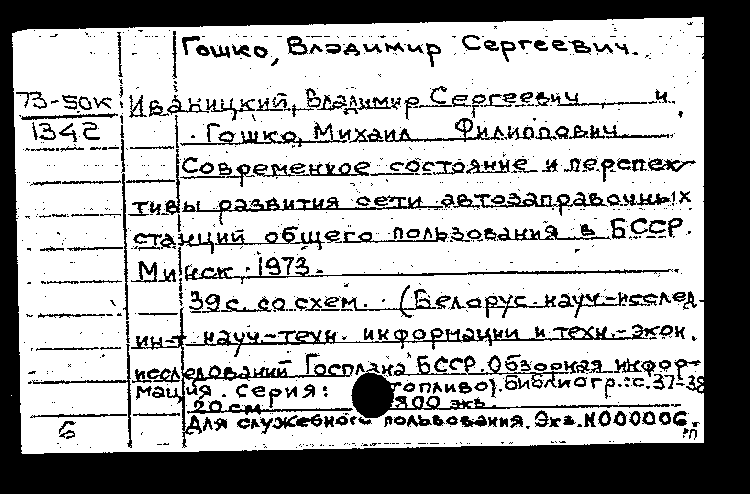 Гошко, Владимир Сергеевич.
73-50к
1342
Иваницкий, Владимир Сергеевич и
Гошко, Михаил Филиппович
Современное состояние и перспек-
тивы развития сети автозаправочных
станций общего пользования в БССР.
Минск, 1973.
39 с. со схем. (Беларус. науч.-исслед.
ин-т науч.-техн. информации и техн.-экон.
исследований Госплана БССР. Обзорная инфор-
мация. Серия: топливо). Библиогр.: с. 37-38
20 см 800 экз.
Для служебного пользования. Экз. N000006.
б